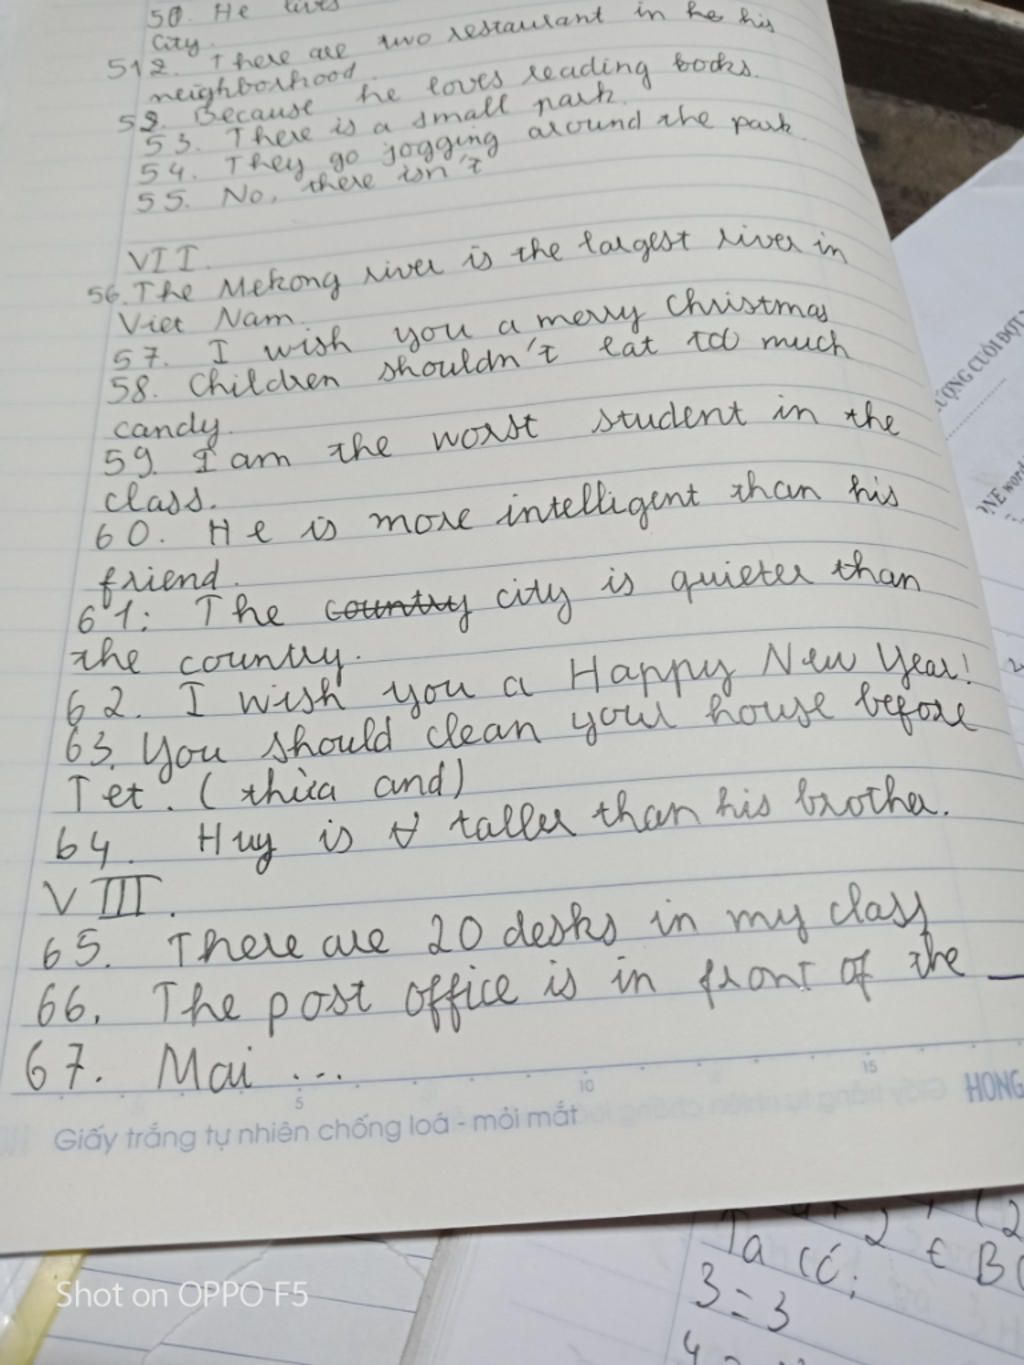 50. He lives
city.
512. There are two restaurant in he his
neighborhood.
52. Because he loves reading books.
53. There is a small park.
54. They go jogging around the park.
55. No, there isn't
VII.
56. The Mekong river is the largest river in
Viet Nam.
57. I wish you a merry Christmas
58. Children shouldn't eat too much
candy.
59. I am the worst student in the
class.
60. He is more intelligent than his
friend.
61: The country city is quieter than
the country.
62. I wish you a Happy New Year!
63. You should clean your house before
Tet. (thừa and)
64. Huy is taller than his brother.
VIII.
65. There are 20 desks in my class
66. The post office is in front of the
67. Mai ...
5 10 15
Giấy trắng tự nhiên chống loá - mỏi mắt
HONG
ƯỢNG CUỐI ĐỢT
ONE word
Ta có:
3 = 3
Shot on OPPO F5